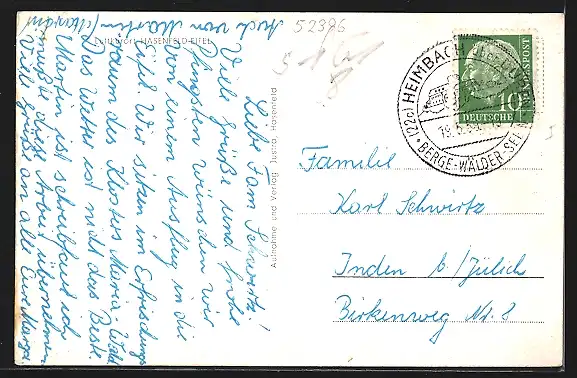 Luftkurort HASENFELD-EIFEL
52396
Liebe Fam Schwirtz!
Viel grüße und frohe
Pfingsten wünschen wir
von einem Ausflug in die
Eifel. Wir sitzen im Erfrischungs
raum des Klosters Maria Wald
Das Wetter ist nicht das Beste.
Martin ist schreibfaul ich
mußte diese Arbeit übernehmen
Viel grüß an all Eure
Auch von Martin
Aufnahme und Verlag Justra, Hasenfeld
(22c) HEIMBACH
BERGE-WÄLDER-SEE
DEUTSCHE BUNDESPOST
10
Familie
Karl Schwirtz
Inden b/Jülich
Birkenweg Nr. 8